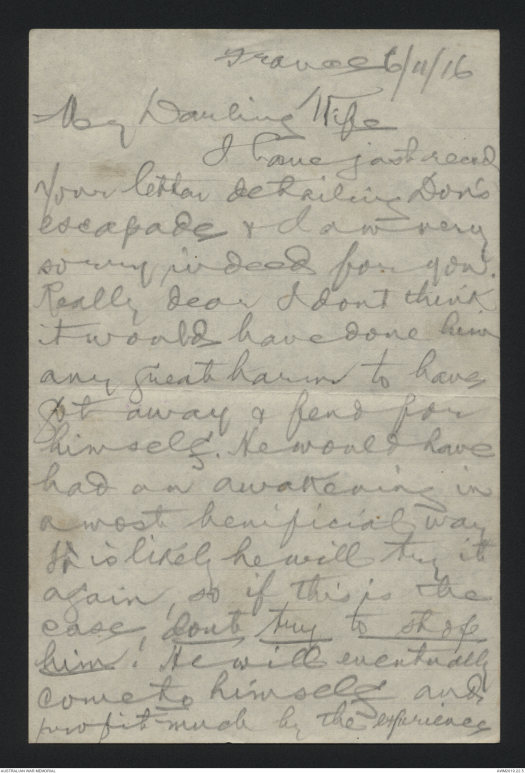 France 6/11/16
My Darling Wife
I have just recd
Your letter detailing Don's
escapade & I am very
sorry indeed for you.
Really dear I dont think
it would have done him
any great harm to have
got away & fend for
himself. He would have
had an awakening in
a most benificial way
It is likely he will try it
again, so if this is the
case, dont try to stop
him! He will eventually
come to himself and
profit much by the experience
AUSTRALIAN WAR MEMORIAL